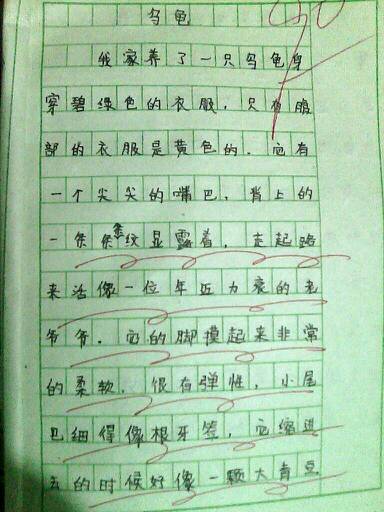 乌龟
我家养了一只乌龟身
穿碧绿色的衣服，只有腹
部的衣服是黄色的。它有
一个尖尖的嘴巴，背上的
一条条纹显露着，走起路
来活像一位年迈力衰的老
爷爷。它的脚摸起来非常
的柔软，很有弹性，小尾
巴细得像根牙签，它缩进
去的时候好像一颗大青豆